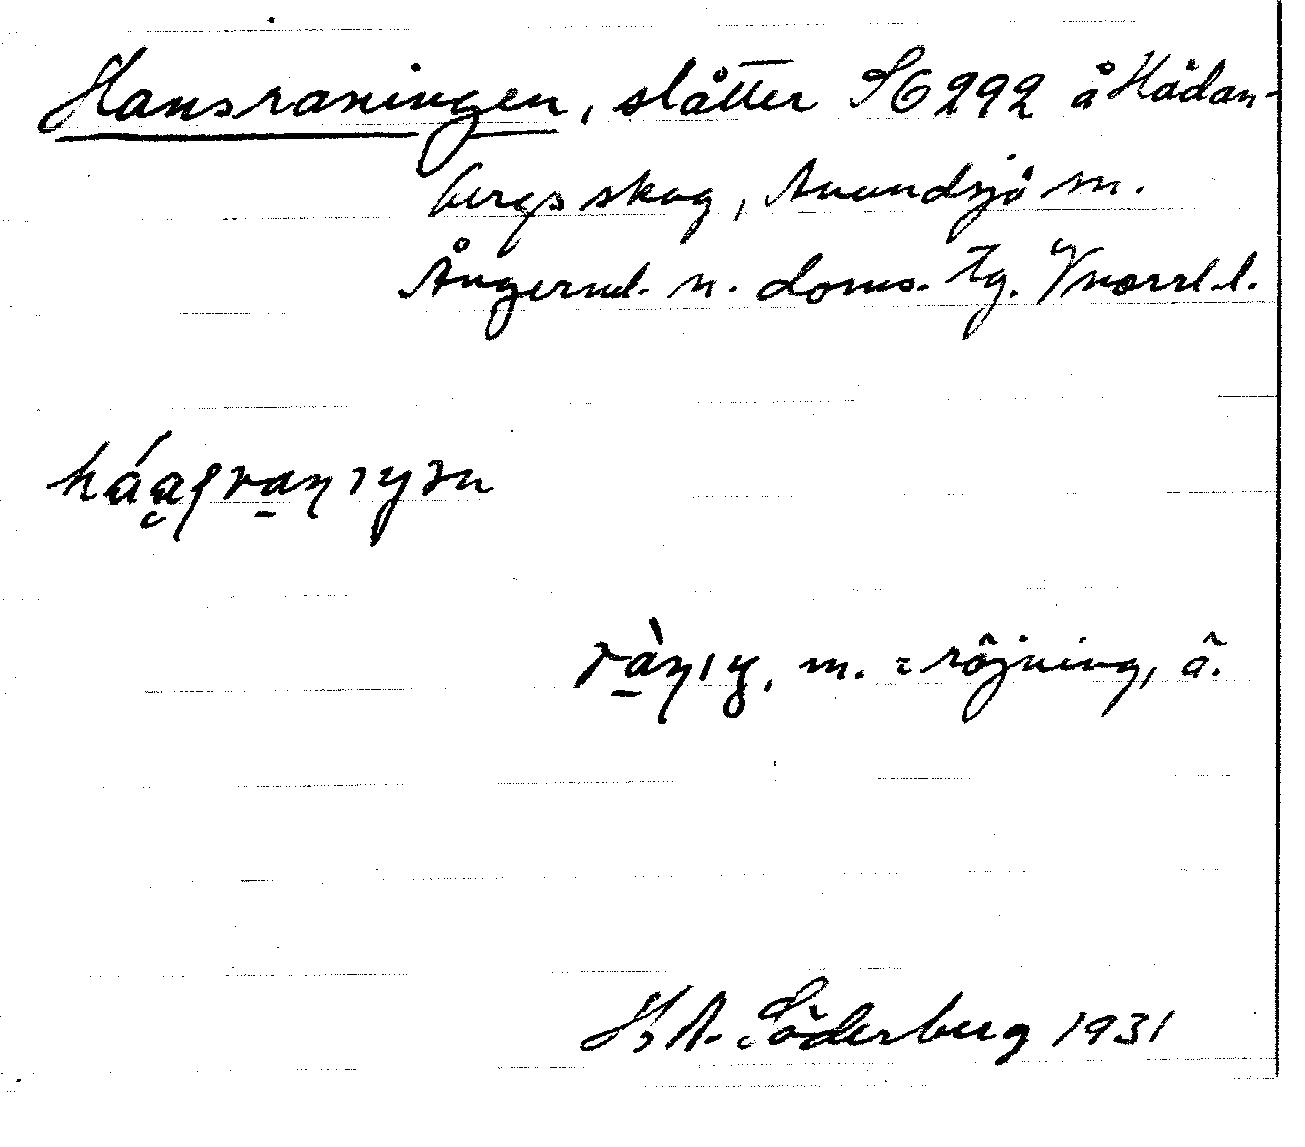 Hansraningen, slåtter S6292 å Hädan-
bergs skog, Anundsjö sn.
Ångerml. n. doms. tg. Vnorrl. l.
rà̱nıŋ, m. = röjning, ä.
H A. Söderberg 1931